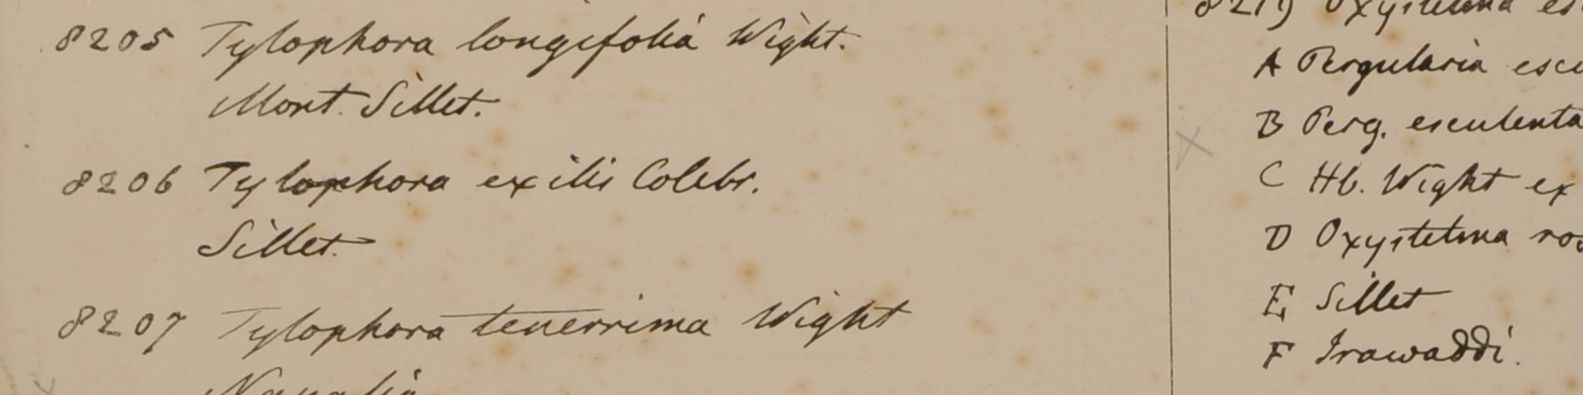 8205 Tylophora longifolia Wight.
Mont. Sillet.
8206 Tylophora exilis Colebr.
Sillet.
8207 Tylophora tenerrima Wight
A Pergularia escu
B Perg. esculenta
C Hb. Wight ex
D Oxystelma ros
E Sillet
F Irawaddi.